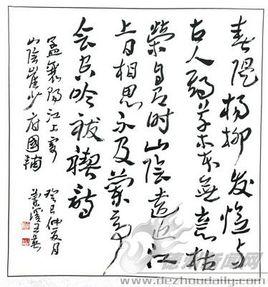 春堤楊柳發憶与
古人期草木本無意枯
榮自有時山陰遠近江
上日相思不及蘭亭
会空吟祓禊詩
孟襄陽江上寄
山陰崔少府國輔
癸巳仲夏月
www.dezhoudaily.com